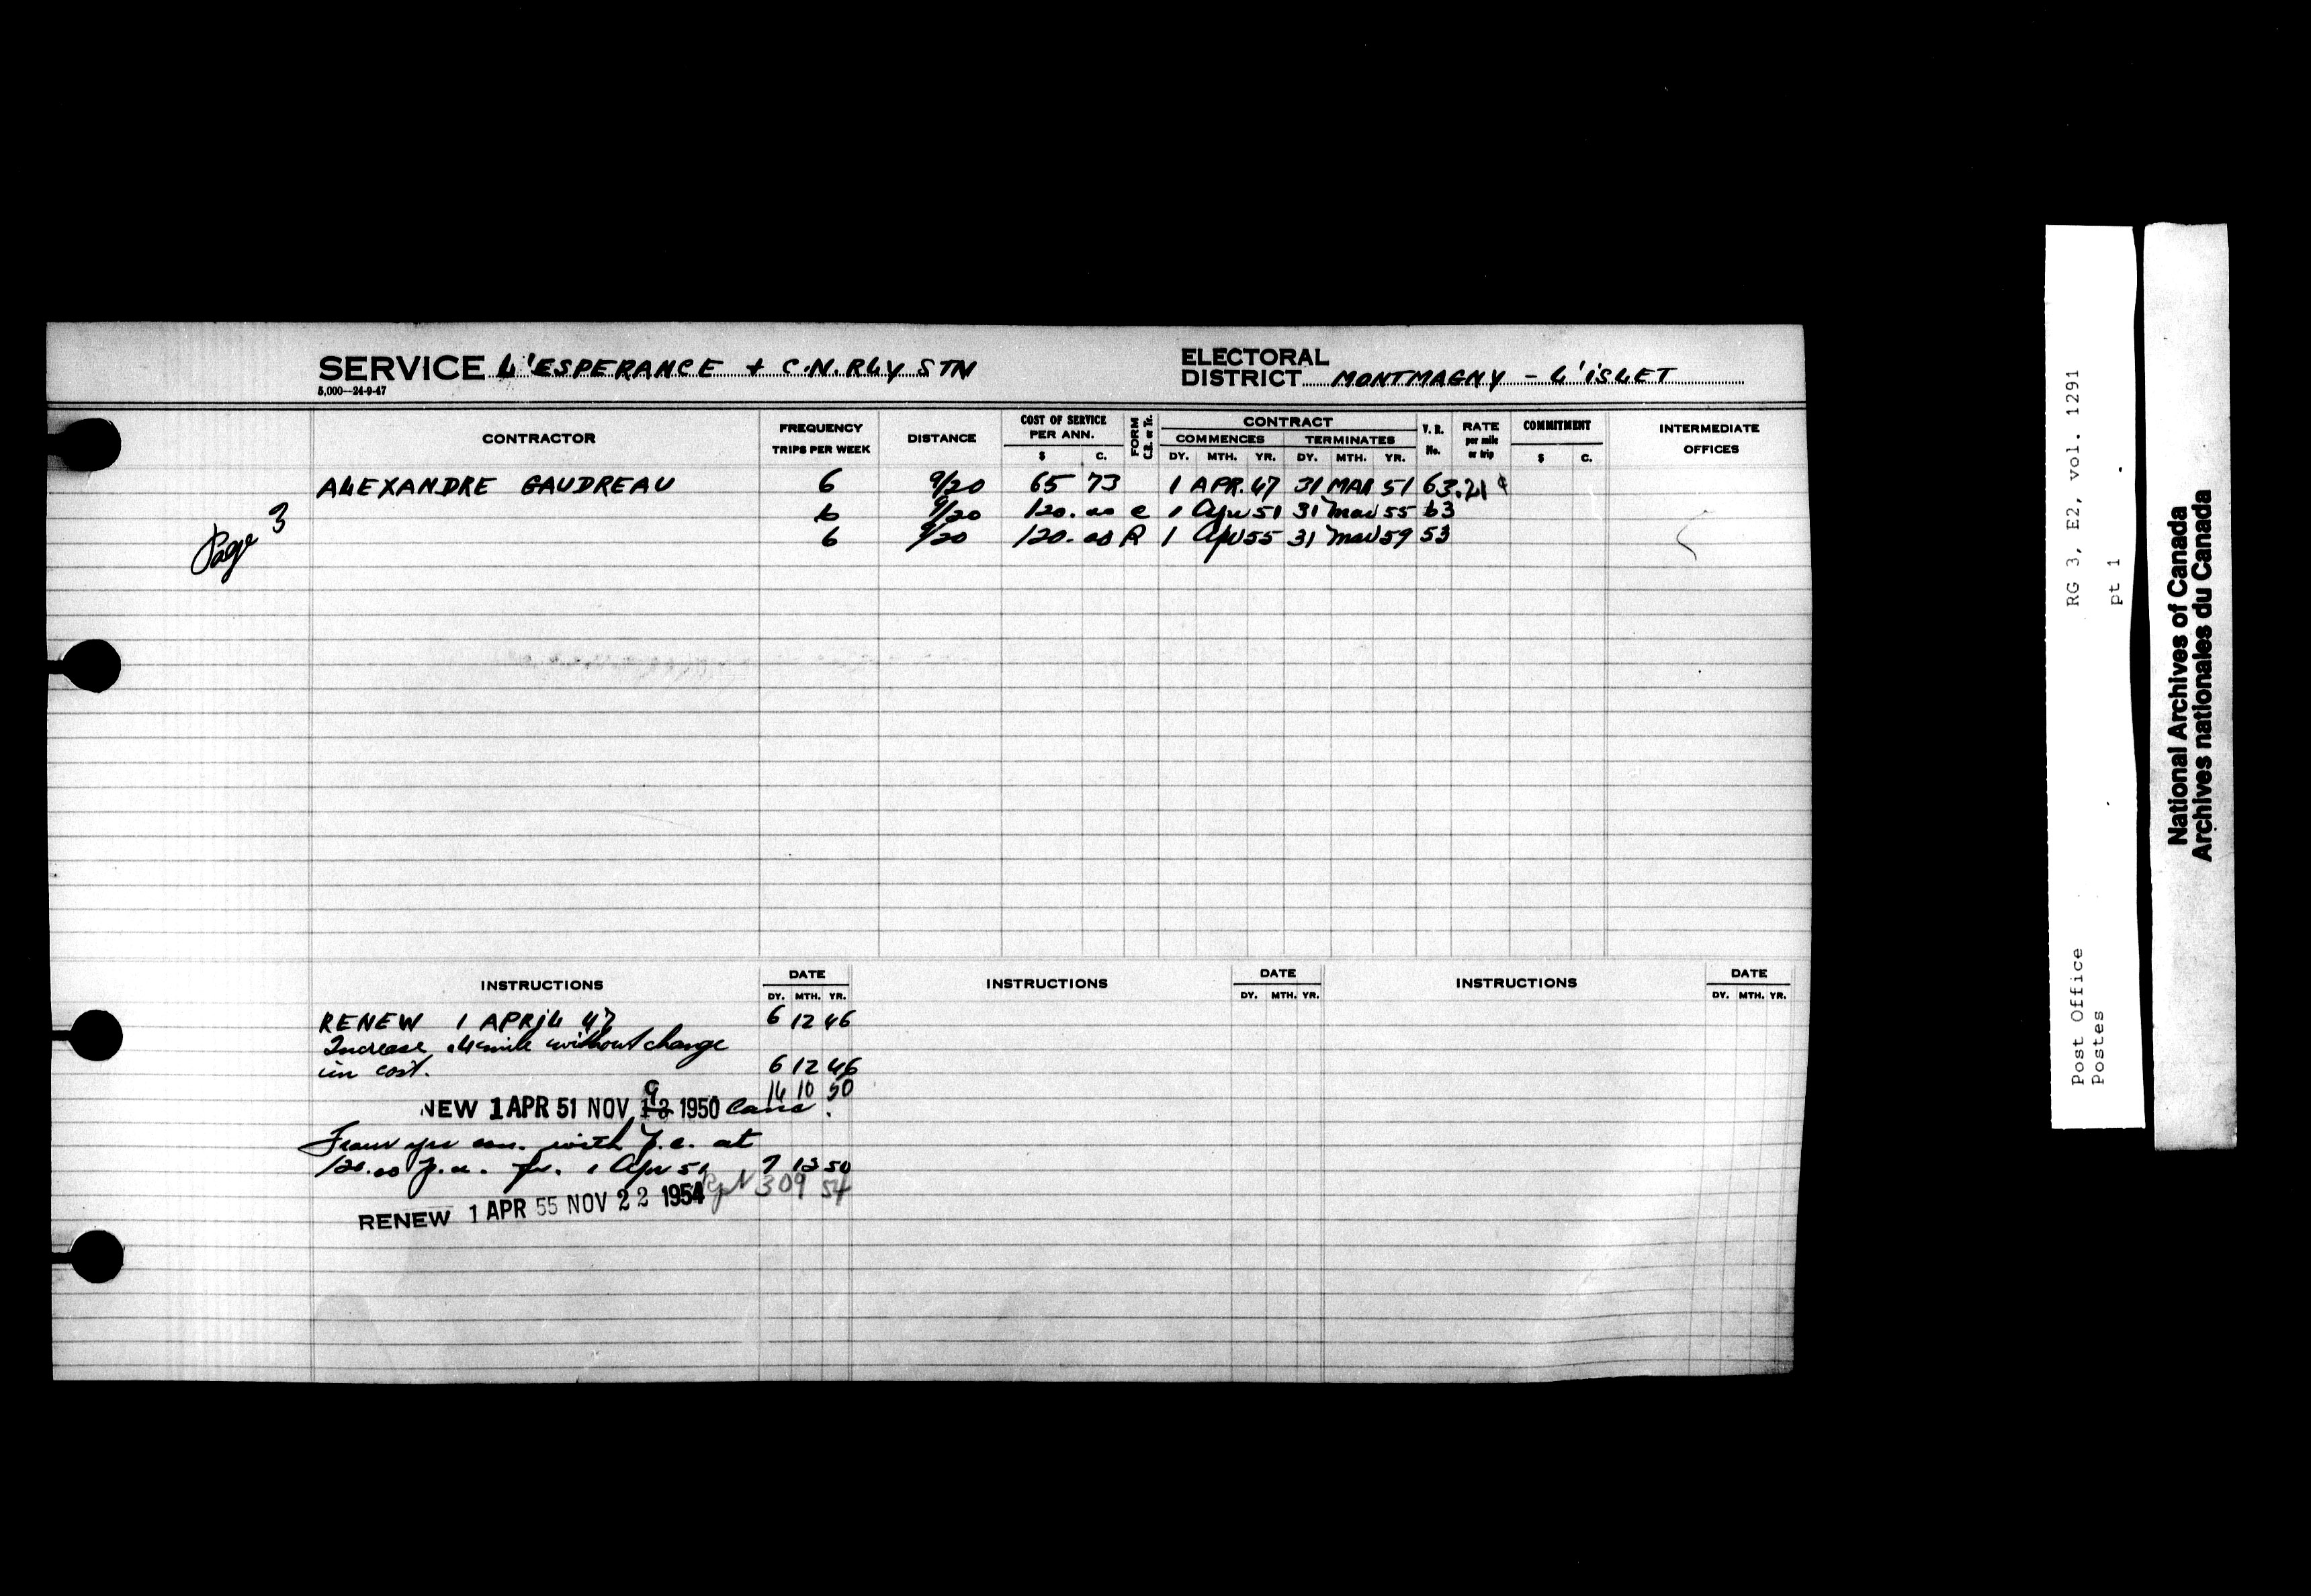 SERVICE L'ESPERANCE + C.N. RLY STN
5,000—24-9-47
ELECTORAL
DISTRICT MONTMAGNY - L'ISLET
CONTRACTOR
FREQUENCY
TRIPS PER WEEK
DISTANCE
COST OF SERVICE
PER ANN.
$ C.
FORM
CONTRACT
COMMENCES TERMINATES
DY. MTH. YR. DY. MTH. YR.
V. R.
No.
RATE
per mile
or trip
COMMITMENT
$ C.
INTERMEDIATE
OFFICES
ALEXANDRE GAUDREAU 6 9/20 65 73 1 APR. 47 31 MAR 51 63 .21 ¢
6 9/20 120.00 c 1 Apr 51 31 Mar 55 63
Page 3
6 9/20 120.00 R 1 Apr 55 31 Mar 59 53
INSTRUCTIONS DATE INSTRUCTIONS DATE INSTRUCTIONS DATE
DY. MTH. YR. DY. MTH. YR. DY. MTH. YR.
RENEW 1 APRIL 47 6 12 46
Increase mile without change
in cost. 6 12 46
14 10 50
9
NEW 1 APR 51 NOV 13 1950 Canc.
Four yr con. with p.c. at
120.00 p.a. fr. 1 Apr 51 7 12 50
30 9 54
RENEW 1 APR 55 NOV 22 1954
RG 3, E2, vol. 1291
pt 1
Post Office
Postes
National Archives of Canada
Archives nationales du Canada